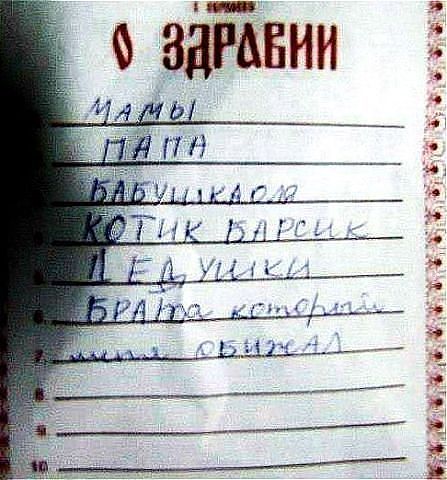 О ЗДРАВИИ
МАМЫ
ПАПА
БАБУШКАОЛЯ
КОТИК БАРСИК
ДЕДУШКИ
6. БРАТА который
7. меня ОБИЖАЛ
8.
9.
10.